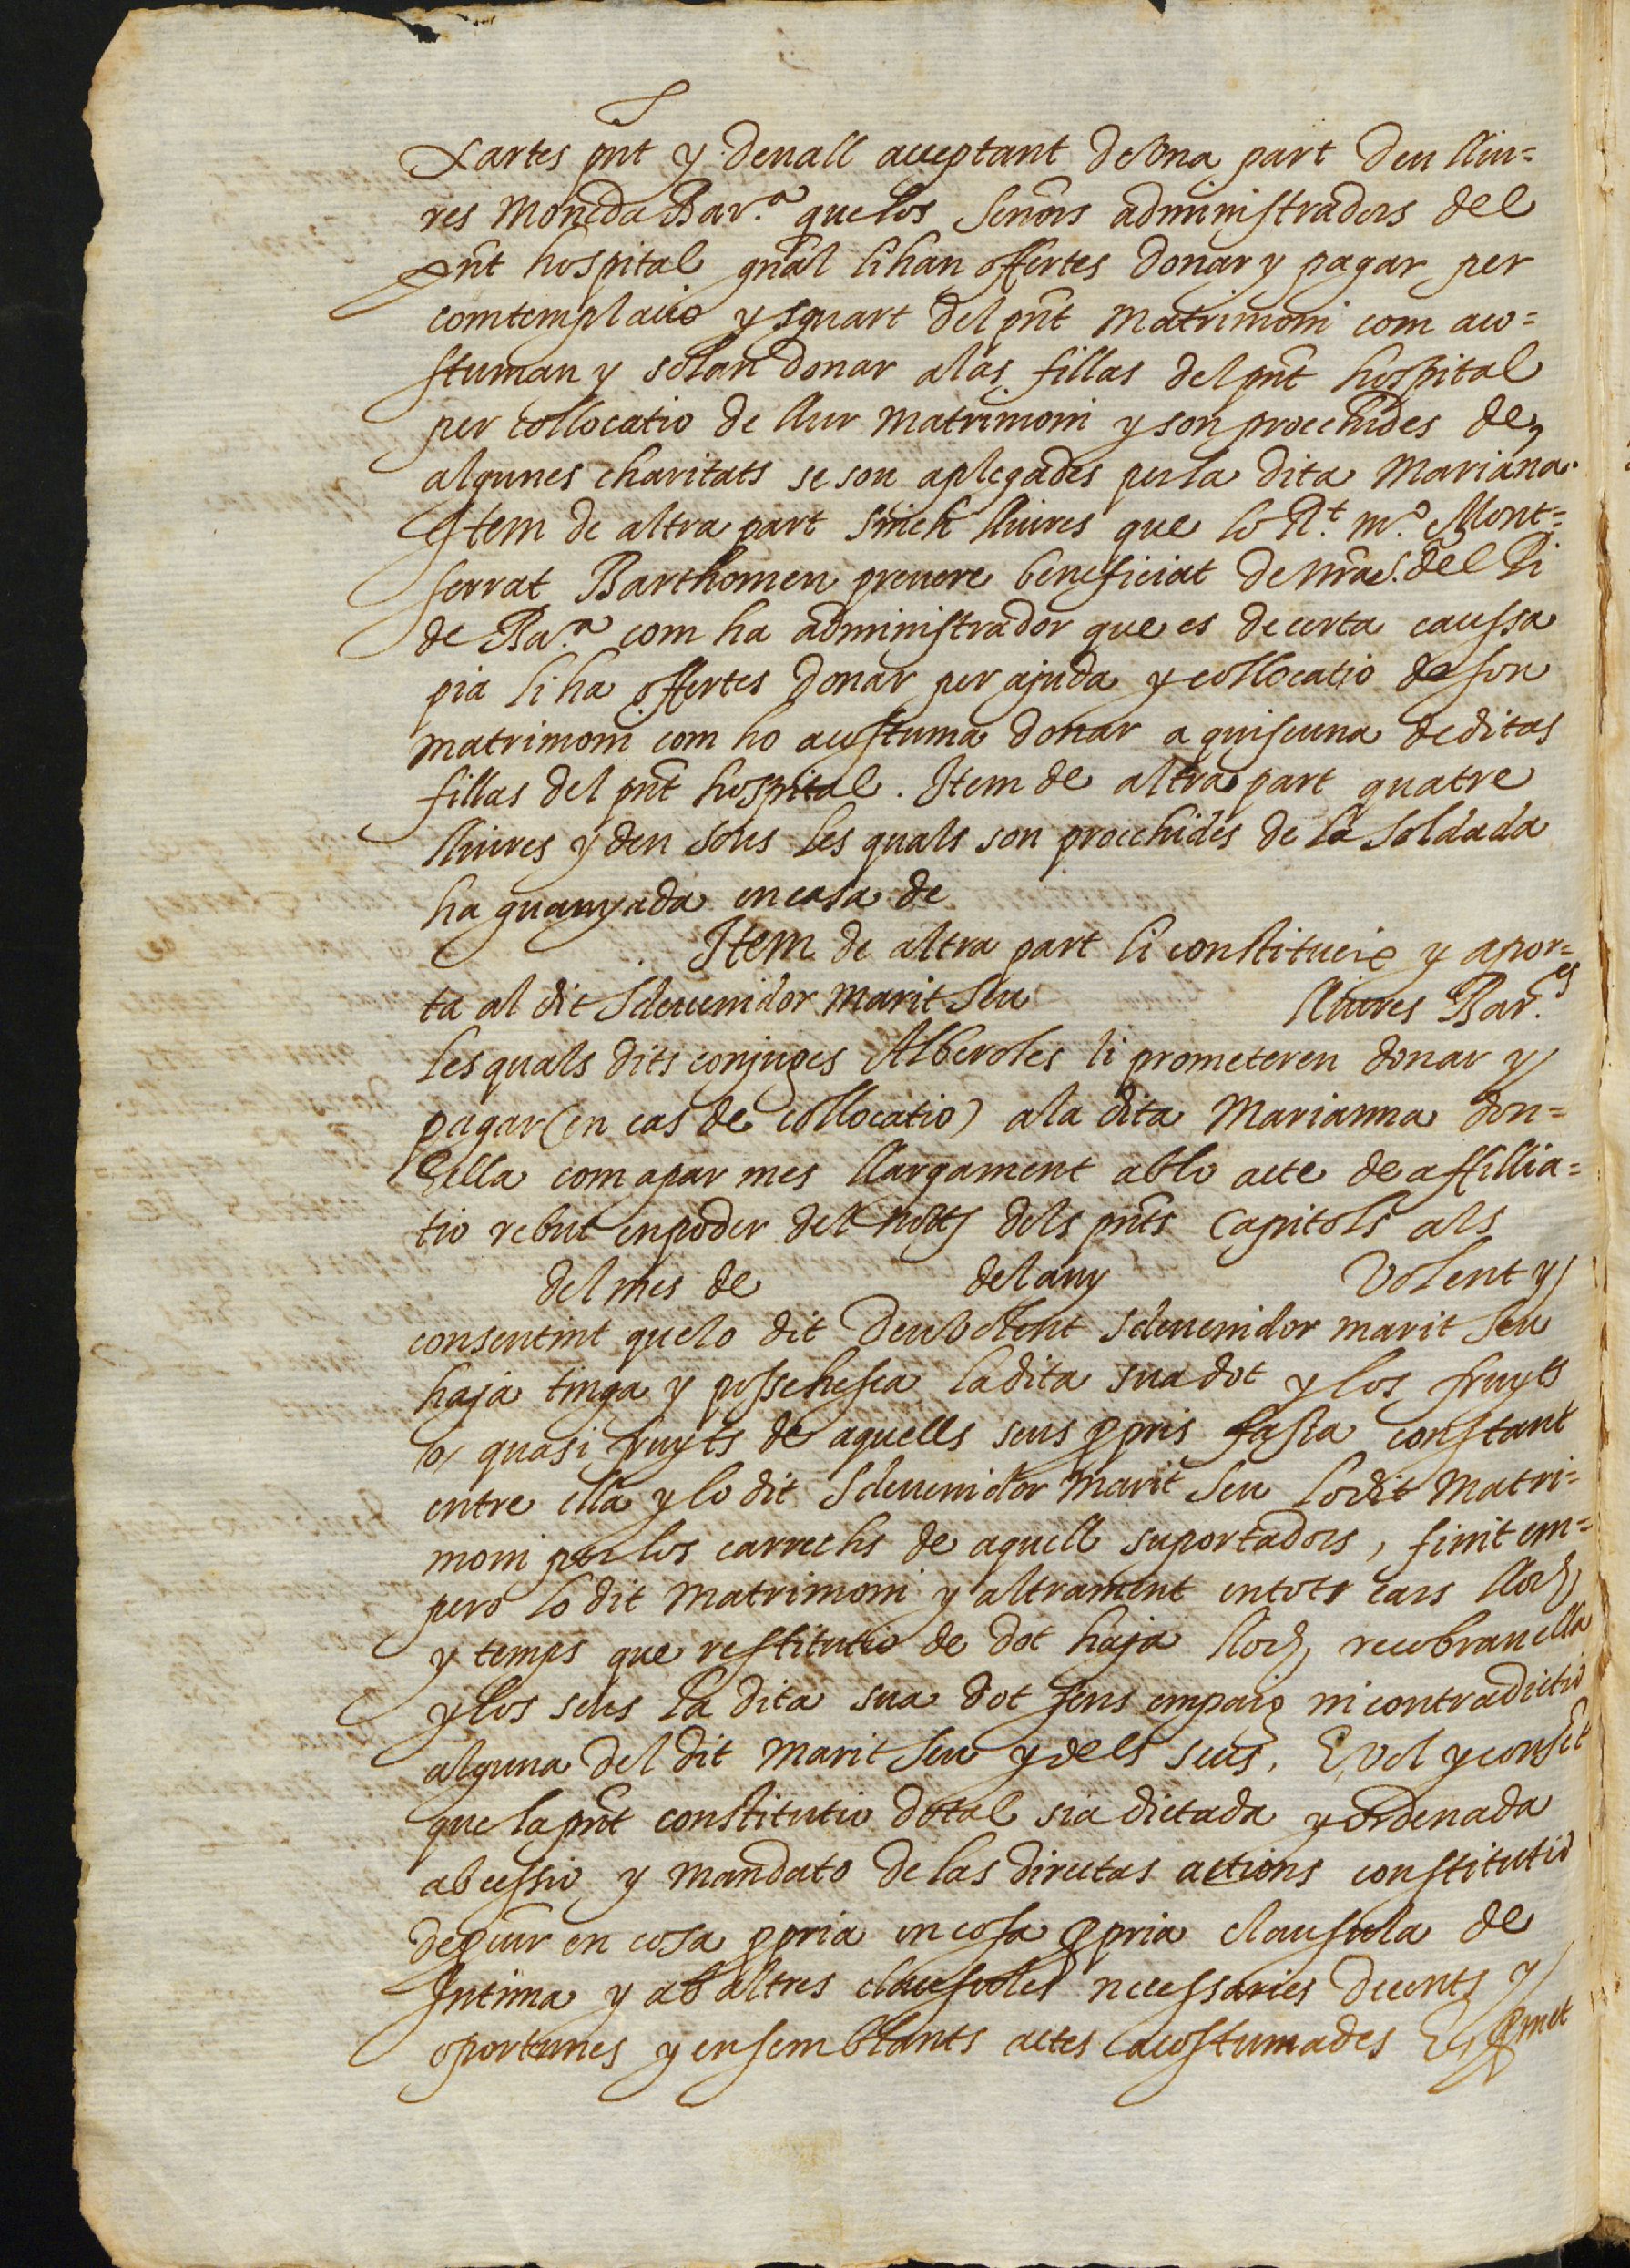 xartes pnt y deuall acceptant de vna part deu lliu=
res moneda Bar.ª que los senors administradors del
pnt hospital gñal li han offertes donar y pagar per
comtemplacio y sguart del pnt matrimoni com aco=
stuman y solan donar a las fillas del pnt hospital
per collocatio de llur matrimoni y son procehides de
algunes charitats se son aplegades per la dita Mariana.
Item de altra part sinch lliures que lo R.t m.º Mont=
serrat Barthomeu preuere beneficiat de nra s. del Pi
de Ba.ª com ha administrador que es de certa caussa
pia li ha offertes donar per ajuda y collocatio de son
matrimoni com ho acustuma donar a quiscuna de ditas
fillas del pnt hospital. Item de altra part quatre
lliures y deu sous les quals son procehides de la soldada
ha guanyada en casa de
Item de altra part li constitueix y apor=
ta al dit sdeuenidor marit seu lliures Bar.es
les quals dits conjuges Alberoles li prometeren donar y
pagar (en cas de collocatio) a la dita Marianna don=
sella com apar mes llargament ab lo acte de affillia=
tio rebut en poder del nott dels pnts capitols als
del mes de del any Volent y
consentint que lo dit sdeuenidor marit seu
haja tinga y possehesca la dita sua dot y los fruyts
o quasi fruyts de aquells seus ppris fassa constant
entre ella y lo dit sdeuenidor marit seu lo dit matri=
moni per los carrechs de aquell suportadors, finit em=
pero lo dit matrimoni y altrament en tots cars lloch
y temps que restitutio de dot haja lloch recobran ella
y los seus la dita sua dot sens empaig ni contradictio
alguna del dit marit seu y dels seus. E vol y consẽt
que la pnt constitutio dotal sia dictada y ordenada
ab cessio y mandato de las directas actions constitutio
de pcur en cosa ppria en cosa ppria clausula de
Intima y ab altres clausules necessaries decents y
oportunes y en semblants actes acostumades E pmet